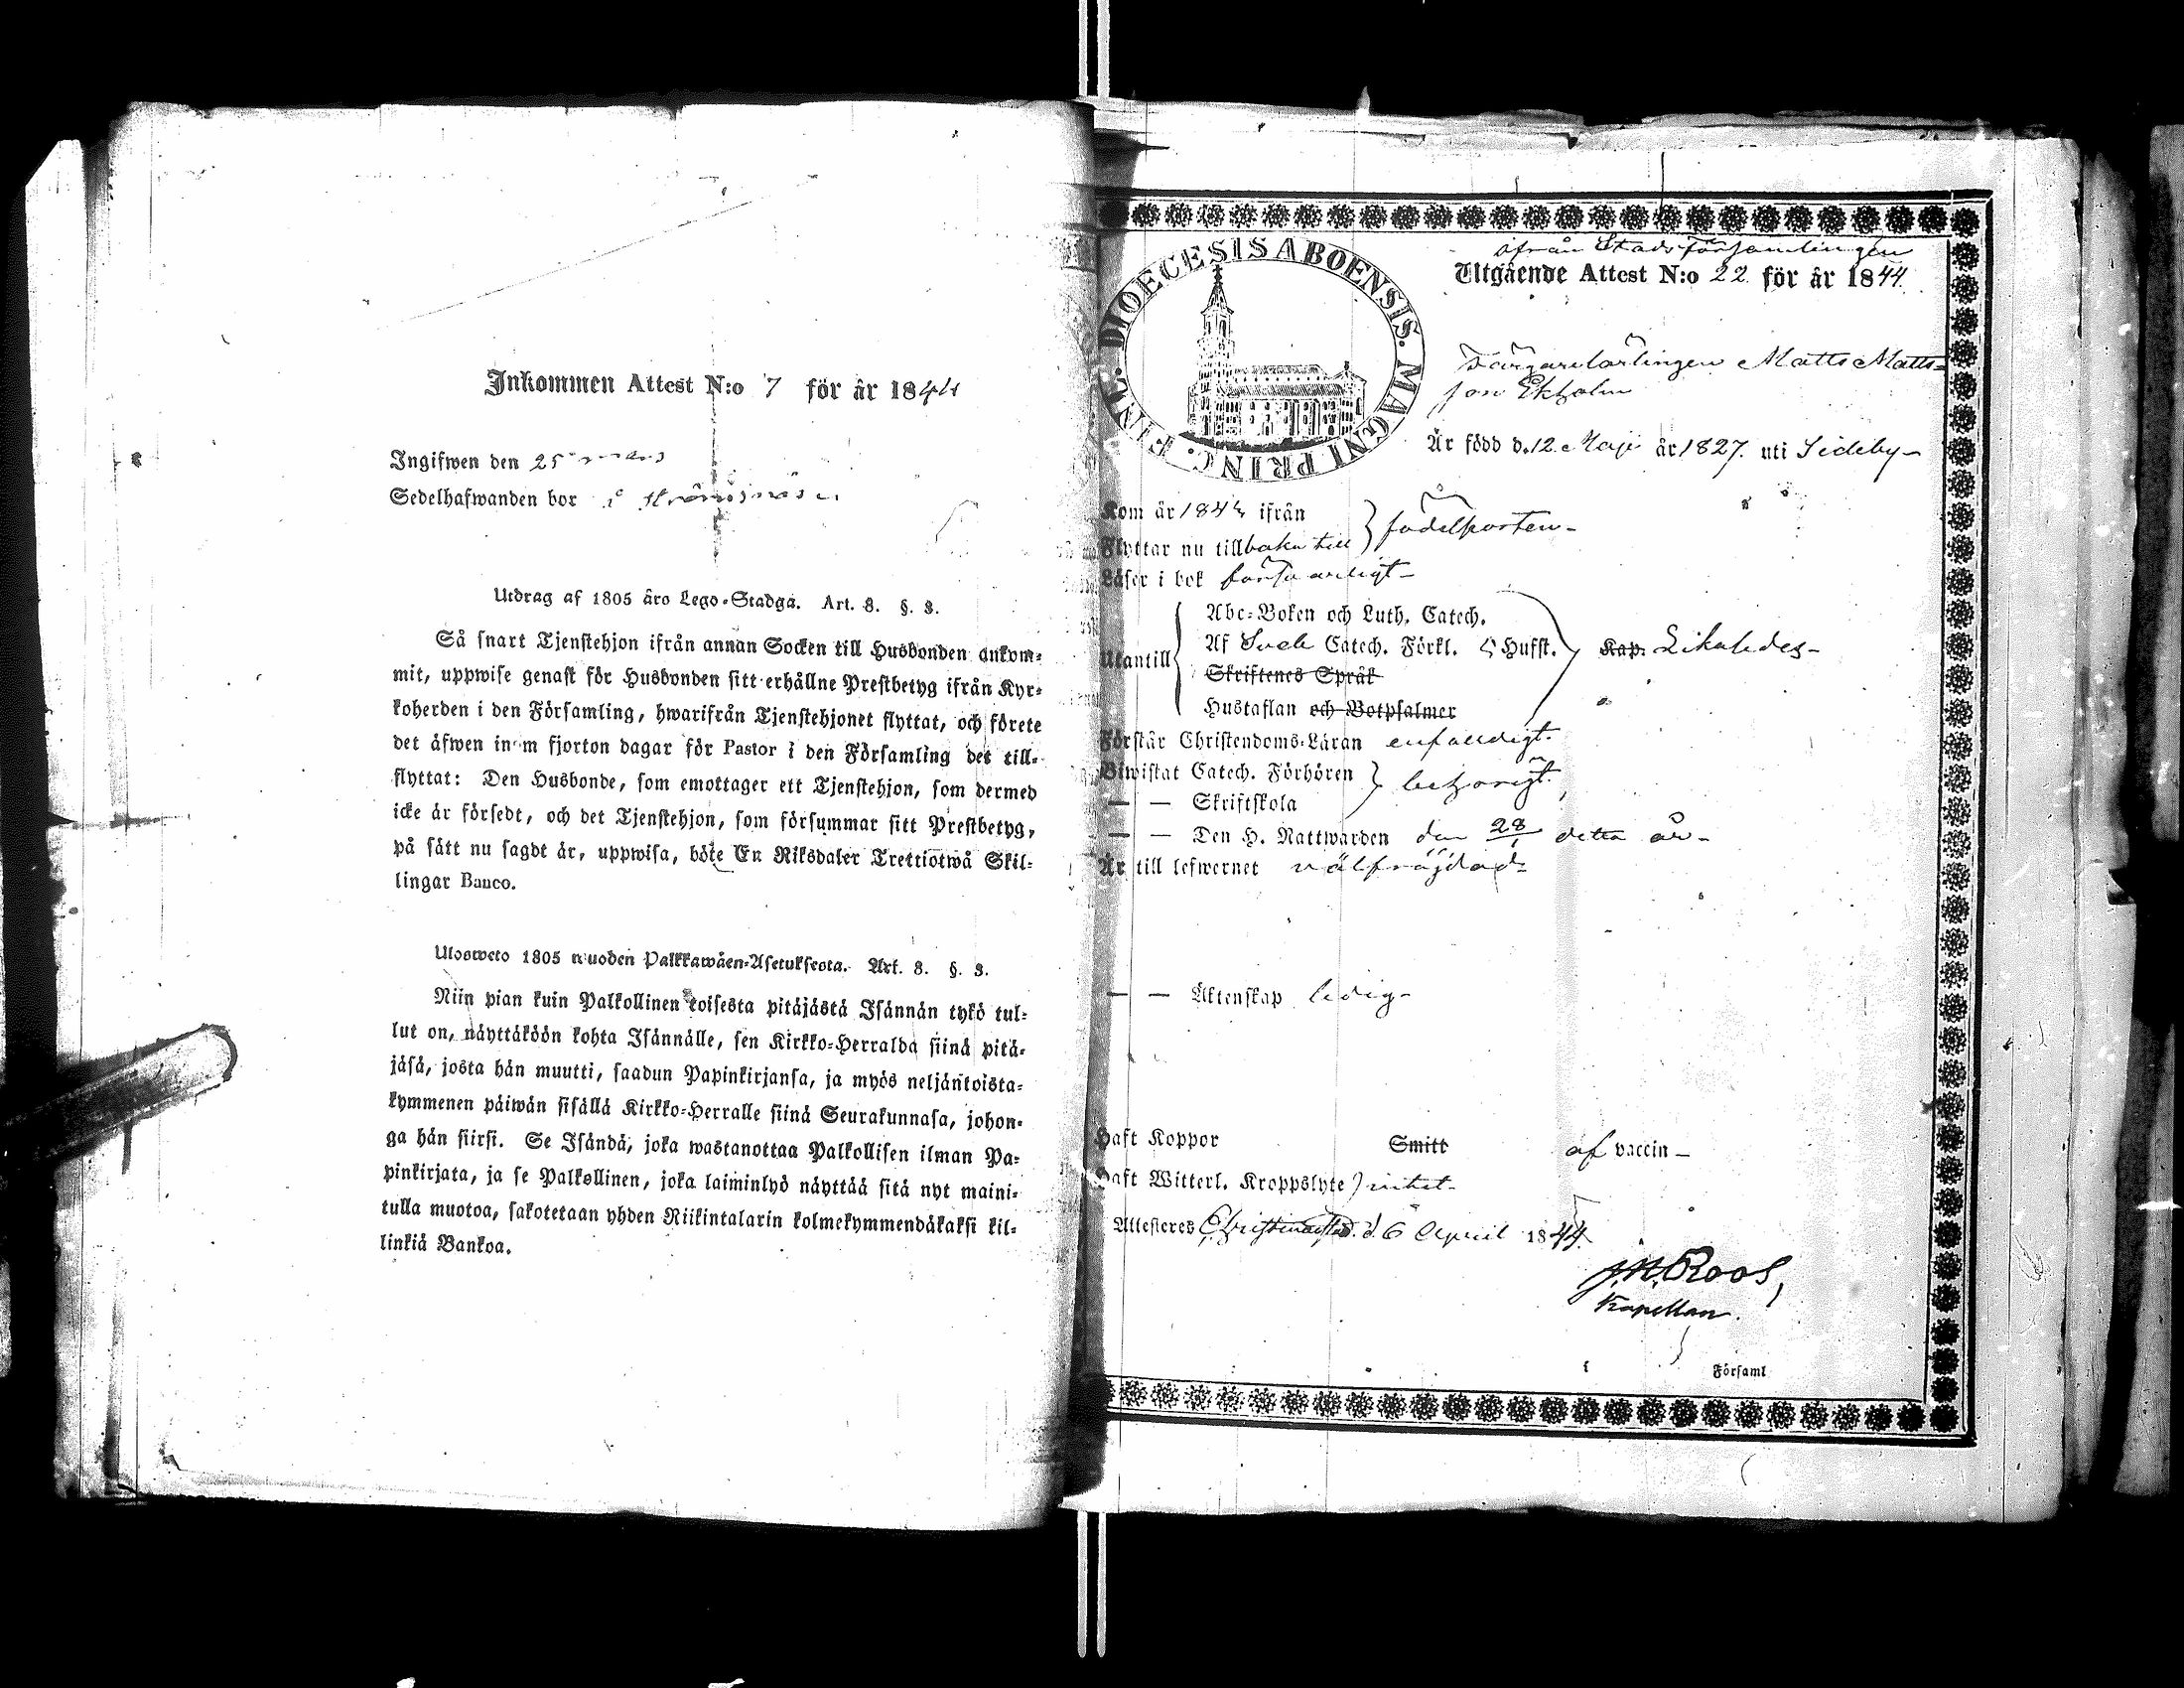 Inkommen Attest N:o 7 för år 1844
Ingifwen den 25 mars
Sedelhafwanden bor i
Utdrag af 1805 års Lego-Stadga. Art. 8. §. 3.
Så snart Tjenstehjon ifrån annan Socken till Husbonden ankom-
mit, uppwise genast för Husbonden sitt erhållne Prestbetyg ifrån Kyr-
koherden i den Församling, hwarifrån Tjenstehjonet flyttat, och förete
det äfwen inom fjorton dagar för Pastor i den Församling det till-
flyttat: Den Husbonde, som emottager ett Tjenstehjon, som dermed
icke är försedt, och det Tjenstehjon, som försummar sitt Prestbetyg,
på sätt nu sagdt är, uppwisa, böte En Riksdaler Trettiotwå Skil-
lingar Banco.
Ulosweto 1805 wuoden Palkkawäen-Asetuksesta. Art. 8. §. 3.
Niin pian kuin Palkollinen toisesta pitäjästä Isännän tykö tul-
lut on, näyttäköön kohta Isännälle, sen Kirkko-Herralda siinä pitä-
jäsä, josta hän muutti, saadun Papinkirjansa, ja myös neljäntoista-
kymmenen päiwän sisällä Kirkko-Herralle siinä Seurakunnasa, johon-
ga hän siirsi. Se Isändä, joka wastanottaa Palkollisen ilman Pa-
pinkirjata, ja se Palkollinen, joka laiminlyö näyttää sitä nyt maini-
tulla muotoa, sakotetaan yhden Riikintalarin kolmekymmendäkaksi kil-
linkiä Bankoa.
DIOECESIS ABOENSIS. MAGNI PRINC. FINL.
ifrån Stadsförsamlingen
Utgående Attest N:o 22 för år 1844.
Färgarelärlingen Matts Matts-
son Ekholm
Är född d. 12 Maji år 1827. uti Sideby-
Kom år 184 ifrån
Flyttar nu tillbaka till } födelseorten-
Läser i bok försvarligt-
Abc-Boken och Luth. Catech.
Utantill Af Sveb Catech. Förkl. Hufst. Kap. Likaledes-
Skriftenes Språk
Hustaflan och Botpsalmer
Förstår Christendoms-Läran enfaldigt.
Biwistat Catech. Förhören } behörigt.
— — Skriftskola
— — Den H. Nattwarden den 28/1 detta år-
Är till lefwernet välfräjdad-
— — Äktenskap ledig-
Haft Koppor Smitt af vaccin —
Haft Witterl. Kroppslyte intet-
Attesteres Christinestad. d. 6 April 1844.
J.N. Roos,
Kapellan.
Församl